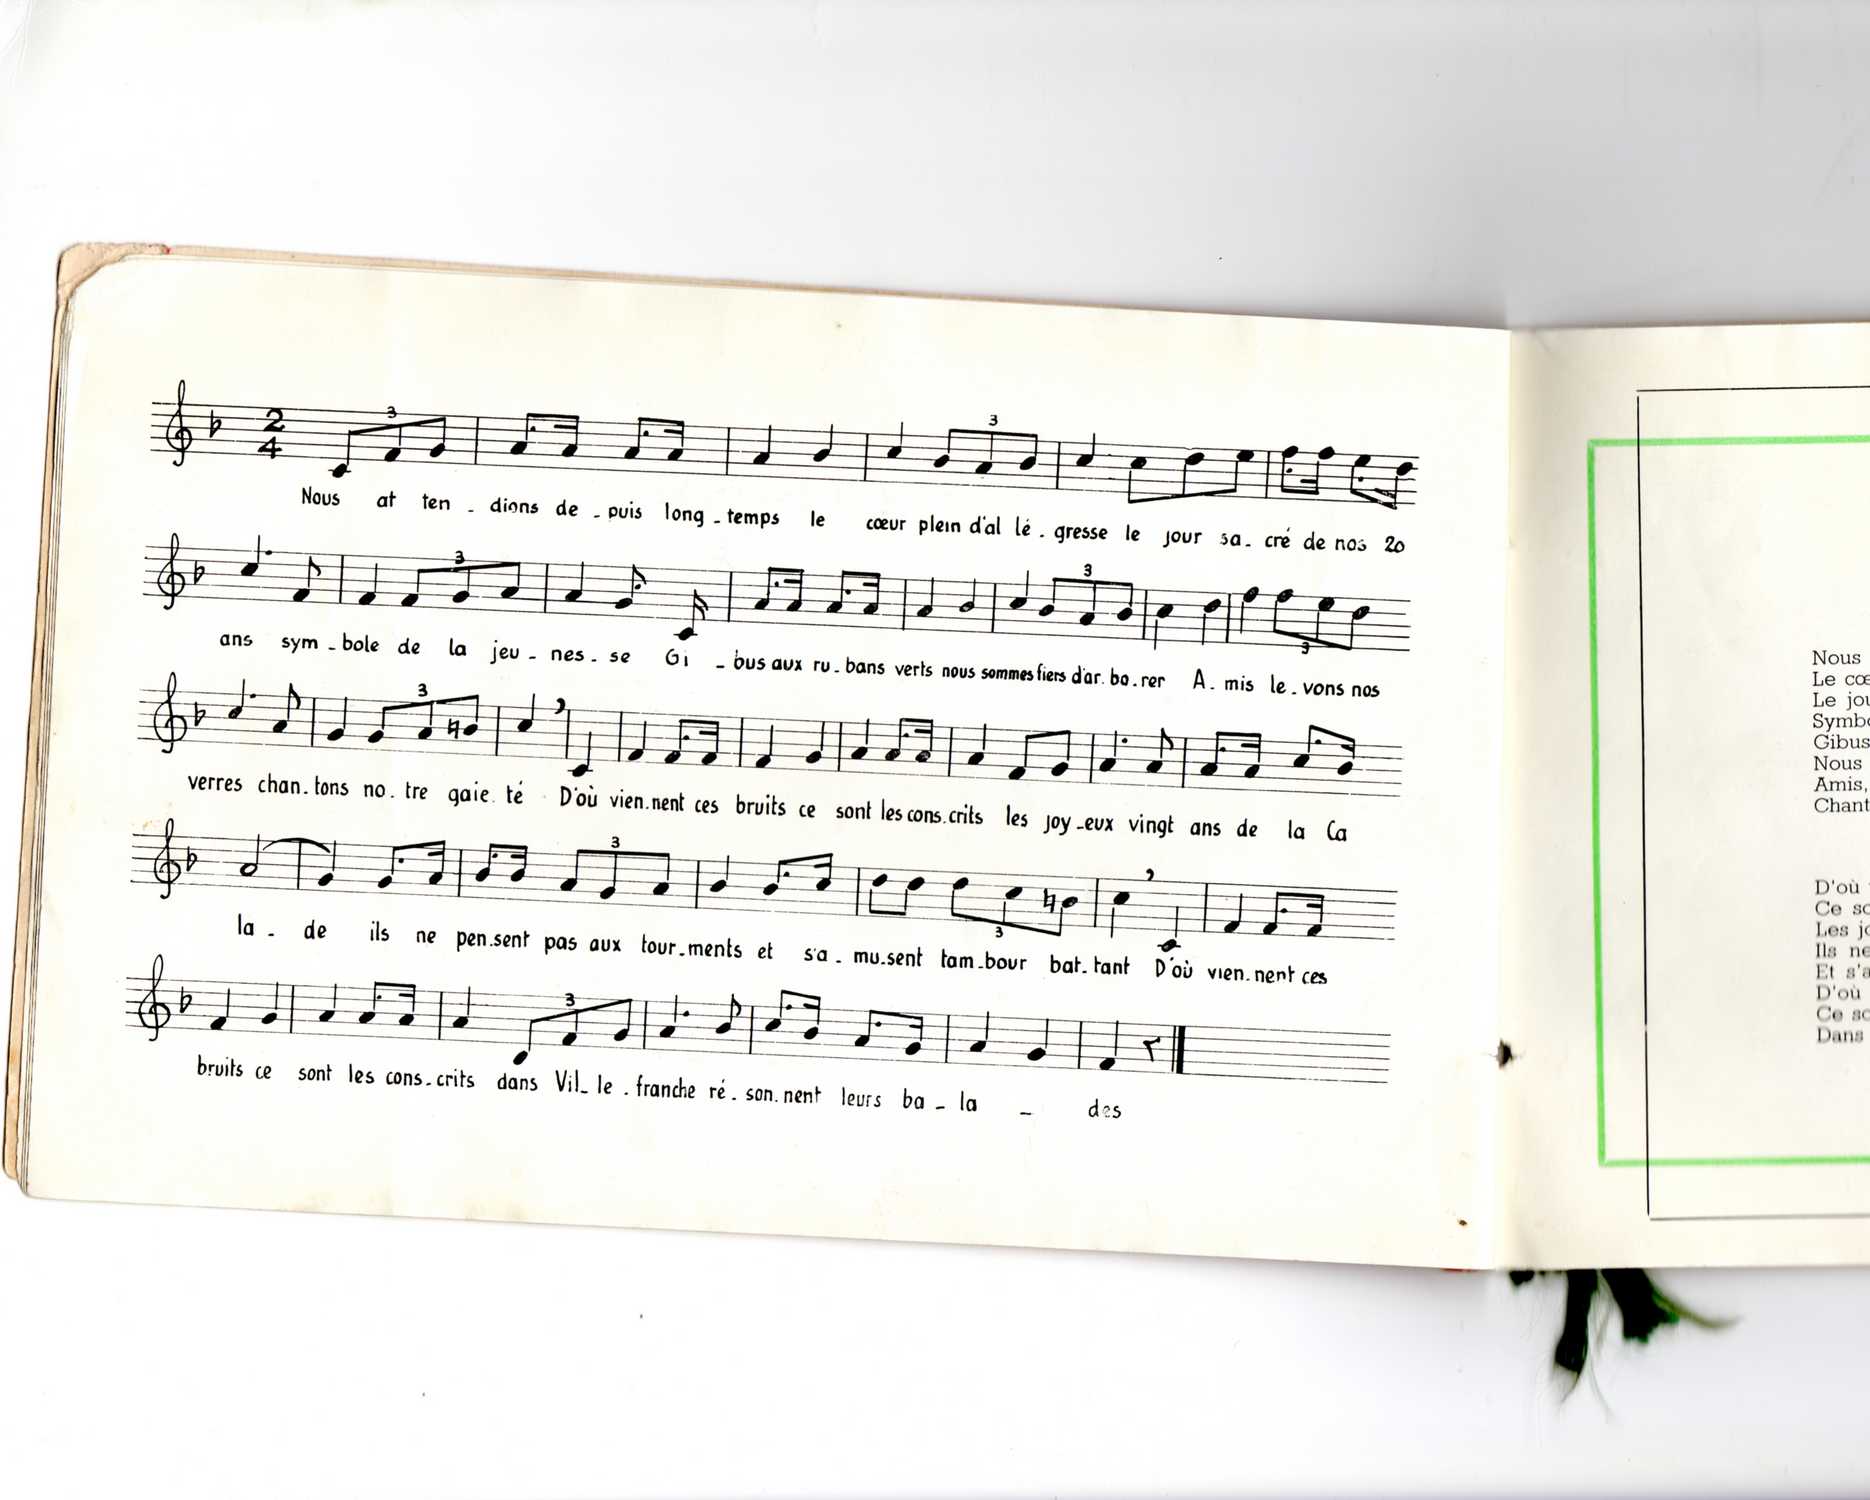 2
4
3
3
Nous at ten - dions de - puis long - temps le cœur plein d'al lé - gresse le jour sa - cré de nos 20
3
3
3
ans sym - bole de la jeu - nes - se Gi - bus aux ru - bans verts nous sommes fiers d'ar - bo - rer A - mis le - vons nos
3
verres chan - tons no - tre gaie té D'où vien - nent ces bruits ce sont les cons - crits les joy - eux vingt ans de la Ca
3
3
la - de ils ne pen - sent pas aux tour - ments et s'a - mu - sent tam - bour bat - tant D'où vien - nent ces
3
bruits ce sont les cons - crits dans Vil - le - franche ré - son - nent leurs ba - la - des
Nous
Le cœ
Le jou
Symbo
Gibus
Nous
Amis,
Chant
D'où
Ce so
Les jo
Ils ne
Et s'a
D'où
Ce so
Dans